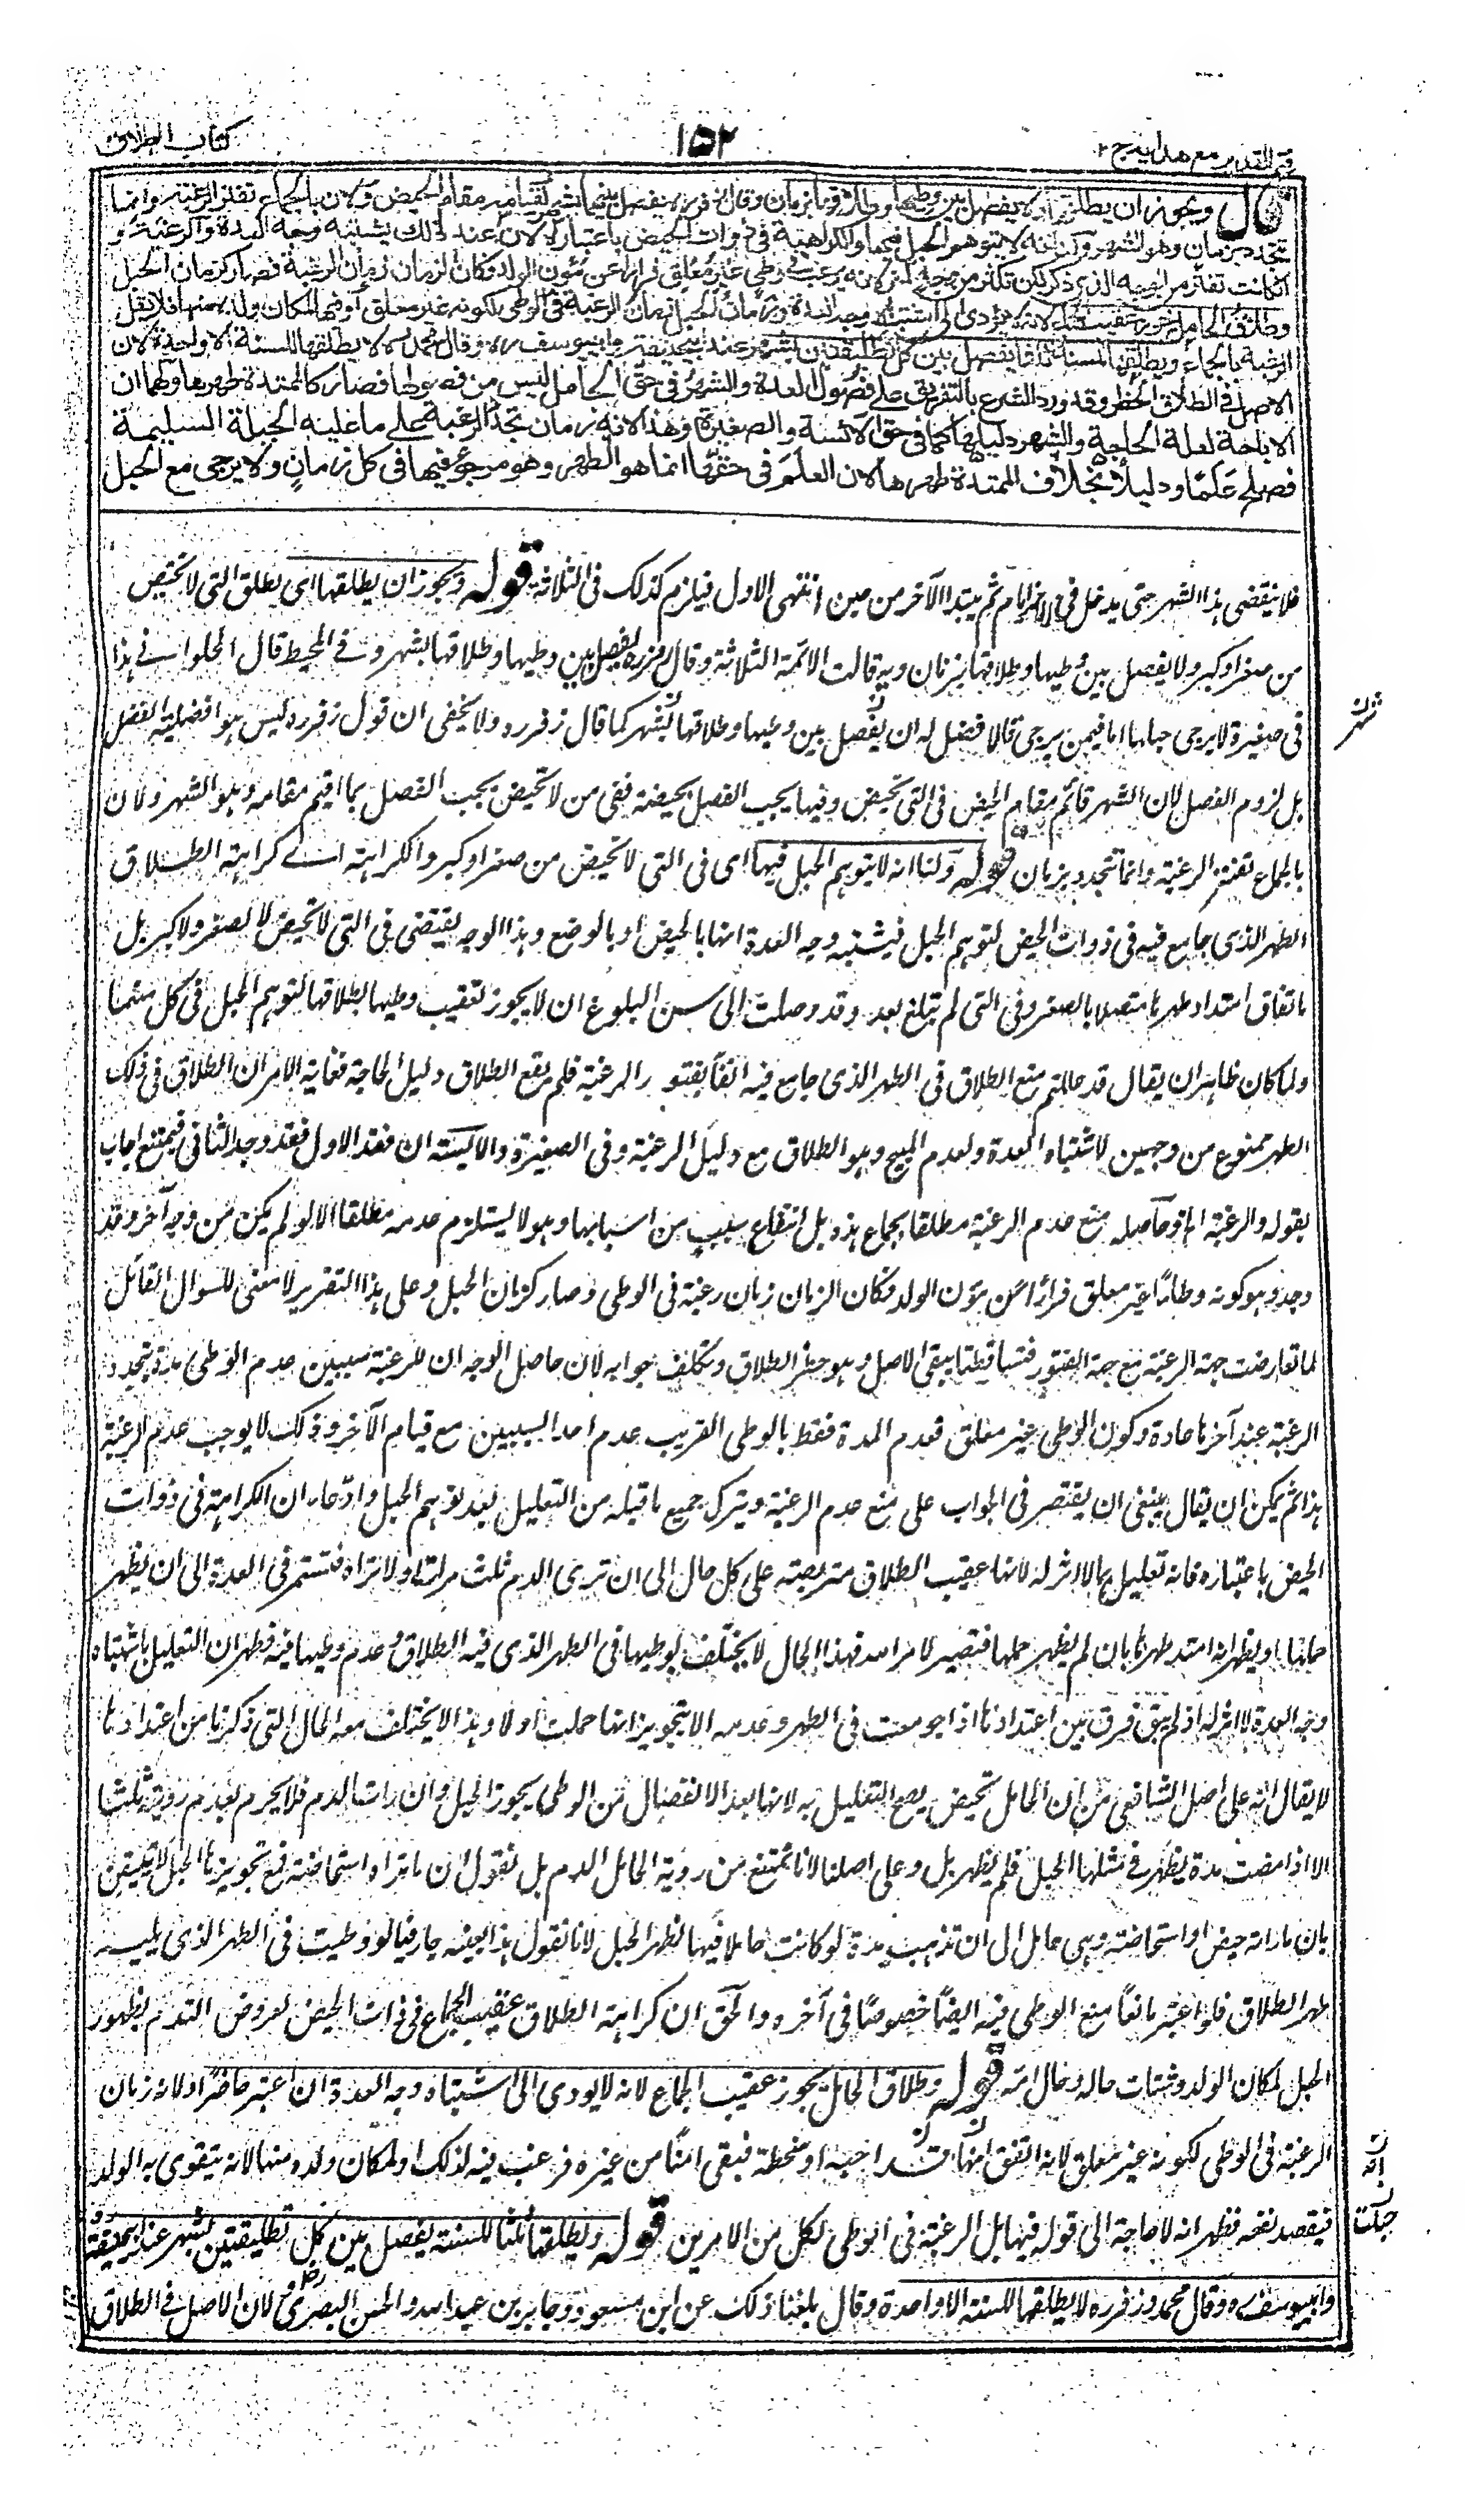 فتح القدير مع هدايه ج ٢
١٥٢
كتاب الطلاق
قال ويجوز ان يطلقها ولا يفصل بين وطيها وطلاقها بزمان وقال زفر يفصل بينهما بشهر لقيامه مقام الحيض ولان بالجماع تفتر الرغبة وانما
تتجدد بزمان وهو الشهر ولنا انه لا يتوهم الحبل فيها والكراهية في ذوات الحيض باعتباره لان عند ذلك يشتبه وجه العدة والرغبة و
ان كانت تفتر من الوجه الذي ذكر لكن تكثر من وجه اخر لانه يرغب في وطي غير معلق فرارا عن مؤن الولد فكان الزمان زمان الرغبة فصار كزمان الحبل
وطلاق الحامل يجوز عقيب الجماع لانه لا يؤدي الى اشتباه وجه العدة وزمان الحبل زمان الرغبة في الوطي لكونه غير معلق او فيها لمكان ولده منها فلا تقل
الرغبة بالجماع ويطلقها للسنة ثلثا يفصل بين كل تطليقتين بشهر عند ابيحنيفة وابييوسف ره وقال محمد ره لا يطلقها للسنة الا واحدة لان
الاصل في الطلاق الحظر وقد ورد الشرع بالتفريق على فصول العدة والشهر في حق الحامل ليس من فصولها فصار كالممتدة طهرها ولهما ان
الاباحة لعلة الحاجة والشهر دليلها كما في حق الآئسة والصغيرة وهذا لانه زمان تجدد الرغبة على ما عليه الجبلة السليمة
فصلح علما ودليلا بخلاف الممتدة طهرها لان العلم في حقها انما هو الطهر وهو مرجو فيها في كل زمان ولا يرجى مع الحبل
فلا ينقضي هذا الشهر حتى يدخل في الآخر ايام ثم يبتدا الآخر من حين انتهى الاول فيلزم كذلك في الثلاثة قوله ويجوز ان يطلقها اى يطلق التي لا تحيض
من صغر او كبر ولا يفصل بين وطيها وطلاقها بزمان وبه قالت الائمة الثلاثة وقال زفر ره يفصل بين وطيها وطلاقها بشهر وفي المحيط قال الحلواني هذا
في صغيرة لا يرجى حبلها اما فيمن يرجى فالافضل له ان يفصل بين وطيها وطلاقها بشهر كما قال زفر ره ولا يخفى ان قول زفر ره ليس هو افضلية الفصل
شهر
بل لزوم الفصل لان الشهر قائم مقام الحيض في التي تحيض وفيها يجب الفصل بحيضة ففي من لا تحيض يجب الفصل بما اقيم مقامه وهو الشهر ولان
بالجماع تفتر الرغبة وانما تتجدد بزمان قوله ولنا انه لا يتوهم الحبل فيها اى في التي لا تحيض من صغر او كبر والكراهة اے كراهة الطلاق
الطهر الذي جامع فيه في ذوات الحيض لتوهم الحبل فيشتبه وجه العدة انها بالحيض او بالوضع وهذا الوجه يقتضي في التي لا تحيض لا لصغر ولا كبر بل
باتفاق امتداد طهرها متصلا بالصغر وفي التي لم تبلغ بعد وقد وصلت الى سن البلوغ ان لا يجوز تعقيب وطيها بطلاقها لتوهم الحبل في كل منهما
ولما كان ظاهرا ان يقال قد عللتم منع الطلاق في الطهر الذي جامع فيه انفا بفتور الرغبة فلم يقع الطلاق دليل الحاجة فغاية الامر ان الطلاق في ذلك
الطهر ممنوع من وجهين لاشتباه العدة ولعدم المبيح وهو الطلاق مع دليل الرغبة وفي الصغيرة والآيسة ان فقد الاول فقد وجد الثاني فيمتنع اجاب
بقوله والرغبة الخ وحاصله منع عدم الرغبة مطلقا بجماع هذه بل انقطاع سبب من اسبابها وهو لا يستلزم عدمه مطلقا الا لو لم يكن من وجه آخر وقد
وجد وهو كونه وطئا غير معلق فرارا من مؤن الولد فكان الزمان زمان رغبة في الوطي وصار كزمان الحبل وعلى هذا التقرير لا معنى للسوال القائل
لما تعارضت جهة الرغبة مع جهة الفتور فتساقطتا يبقى الاصل وهو حظر الطلاق وتكلف جوابه لان حاصل الوجه ان للرغبة سببين عدم الوطي مدة تتجدد
الرغبة عند آخرها عادة وكون الوطي غير معلق فعدم المدة فقط بالوطي القريب عدم احد السببين مع قيام الآخر وذلك لا يوجب عدم الرغبة
هذا ثم يمكن ان يقال ينبغي ان يقتصر في الجواب على منع عدم الرغبة ويترك جميع ما قبله من التعليل بعدم توهم الحبل وادعاء ان الكراهة في ذوات
الحيض باعتباره فانه تعليل بما لا اثر له لانها عقيب الطلاق متربصة على كل حال الى ان ترى الدم ثلث مرات او لا تراه فتستمر في العدة الى ان يظهر
حبلها او يظهر انه امتد طهرها بان لم يظهر حملها فتصير لامر الله فهذا الحال لا يختلف بوطيها في الطهر الذي فيه الطلاق وعدم وطيها فيه فظهر ان التعليل باشتباه
وجه العدة لا اثر له اذ لم يبق فرق بين اعتدادها اذا جومعت في الطهر وعدمه الا بتجويز انها حملت اولا وهذا لا يختلف معه الحال التي ذكرنا من اعتدادها
لا يقال انه على اصل الشافعي من ان الحامل تحيض يصح التعليل به لانها بعد الانفصال من الوطي يجوز الحبل وان رات الدم فلا يحرم لعدم رويته ثلثا
الا اذا مضت مدة يظهر في مثلها الحبل فلم يظهر بل وعلى اصلنا لانا نمتنع من روية الحامل الدم بل نقول ان ما تراه استحاضة فمع تجويزنا الحبل لا تتيقن
بان ما راته حيض او استحاضة وهي حامل الى ان تذهب مدة لو كانت حاملا فيها لظهر الحبل لانا نقول هذا بعينه جار فيما لو وطيت في الطهر الذي يليه
طهر الطلاق فلو اعتبر مانعا منع الوطي فيه ايضا خصوصا في آخره والحق ان كراهة الطلاق عقيب الجماع في ذوات الحيض لعروض الندم بظهور
الحبل لمكان الولد وشتات حاله وحال امه قوله وطلاق الحامل يجوز عقيب الجماع لانه لا يودي الى اشتباه وجه العدة ان اعتبر حاضرا ولانه زمان
الرغبة في الوطي لكونه غير معلق لانه اتفق انها قد احبه او سخطه فبقى امنا من غيره فرغب فيه لذلك او لمكان ولده منها لانه يتقوى به الولد
انه
حبلت
فيقصد نفعه فظهر انه لا حاجة الى قوله فيها بل الرغبة في الوطي لكل من الامرين قوله ويطلقها ثلثا للسنة يفصل بين كل تطليقتين بشهر عند ابيحنيفة
وابييوسف ره وقال محمد وزفر ره لا يطلقها للسنة الا واحدة وقال بلغنا ذلك عن ابن مسعود وجابر بن عبد الله والحسن البصري رض لان الاصل في الطلاق